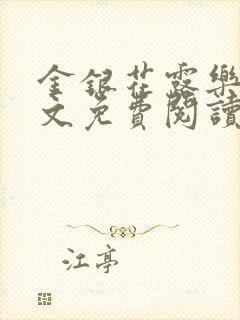 金銀花露樂
文免費閱讀
江亭